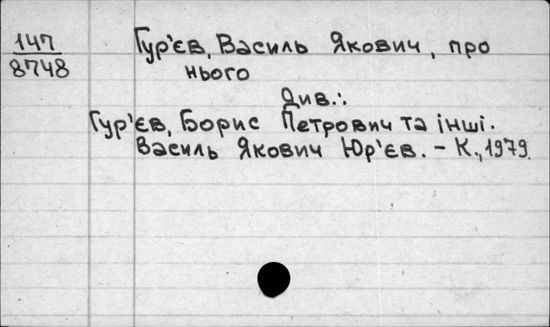 147
8748
Гур'єв, Василь Якович, про
нього
Див.:
Гур'єв, Борис Петрович та інші.
Василь Якович Юр'єв. – К., 1979.